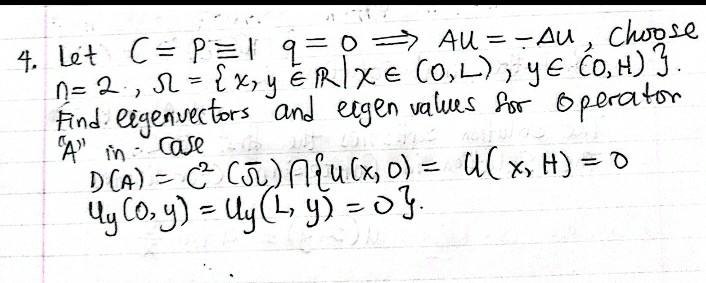 4. Let C = P ≡ 1 q = 0 ⟹ AU = -ΔU, choose
n = 2., Ω = {x, y ∈ ℝ | x ∈ (0, L), y ∈ (0, H)}.
Find eigenvectors and eigen values for operator
"A" in case
D(A) = C² (Ω̅) ∩ {u(x, 0) = u(x, H) = 0
Uy(0, y) = Uy(L, y) = 0}.